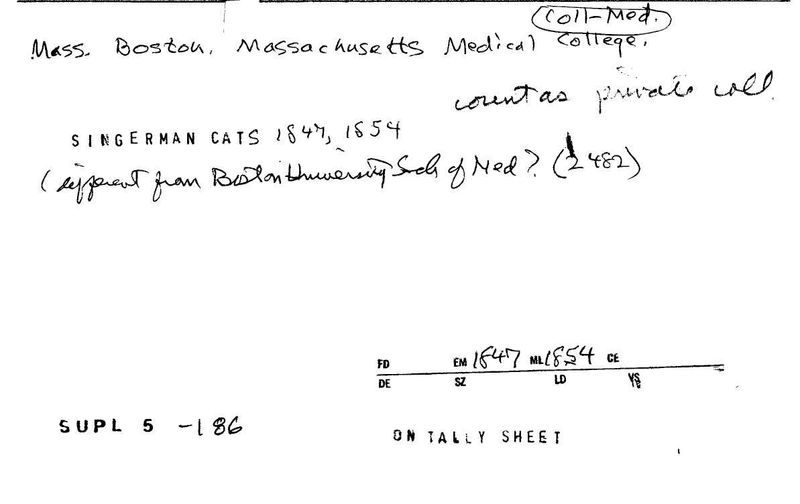 Coll-Med.
Mass. Boston. Massachusetts Medical College.
count as private coll.
SINGERMAN CATS 1847, 1854
(different from Boston University Sch of Med? (2482)
FD EM 1847 ML 1854 CE
DE SZ LD YS
SUPL 5 -186
ON TALLY SHEET